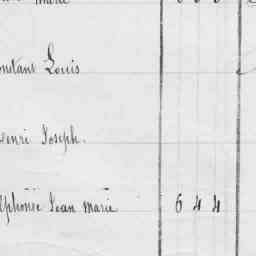 Marie
Constant Louis
Henri Joseph.
Alphonse Jean Marie 6 4 4